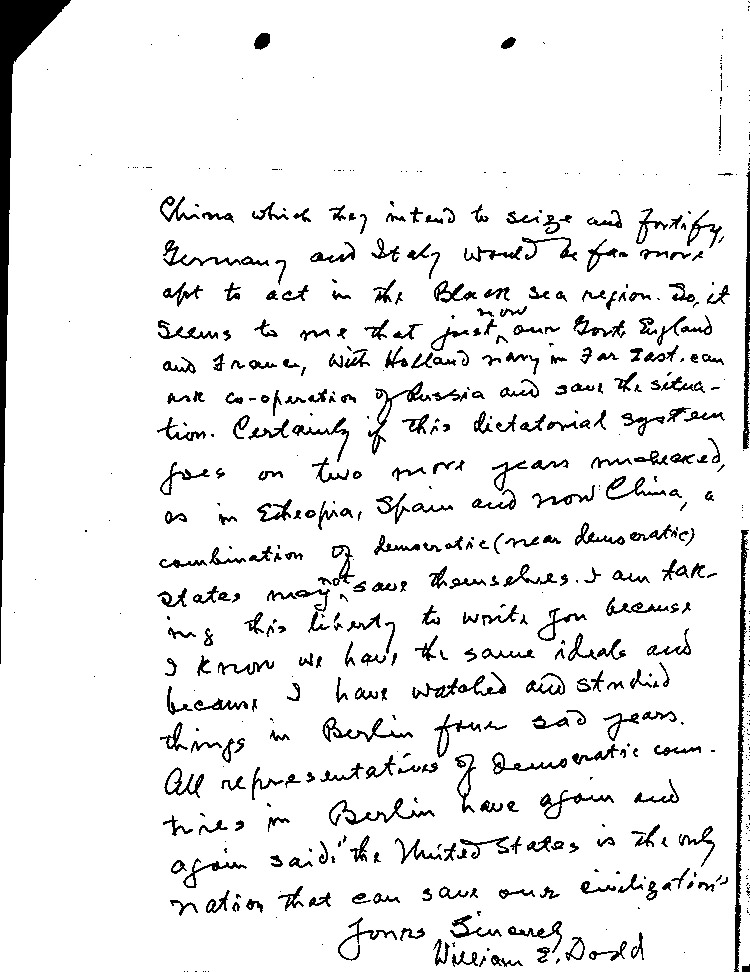 China which they intend to seize and fortify,
Germany and Italy would be far more
apt to act in the Black sea region. So, it
seems to me that just now our Govt, England
and France, with Holland navy in Far East, can
ask co-operation of Russia and save the situa-
tion. Certainly if this dictatorial system
goes on two more years unchecked,
as in Etheopia, Spain and now China, a
combination of democratic (near democratic)
states may not save themselves. I am tak-
ing this liberty to write you because
I know we have the same ideals and
because I have watched and studied
things in Berlin four sad years.
All representatives of democratic coun-
tries in Berlin have again and
again said: "the United States is the only
nation that can save our civilization"
Yours Sincerely
William E. Dodd